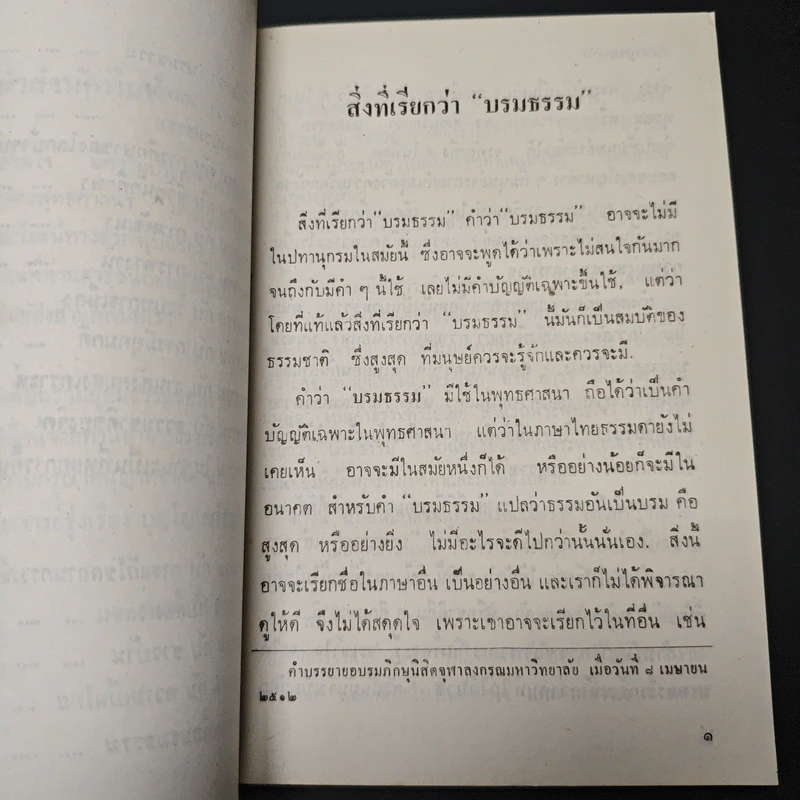 สิ่งที่เรียกว่า “บรมธรรม”
สิ่งที่เรียกว่า “บรมธรรม” คำว่า “บรมธรรม” อาจจะไม่มี
ในปทานุกรมในสมัยนี้ ซึ่งอาจจะพูดได้ว่าเพราะไม่สนใจกันมาก
จนถึงกับมีคำ ๆ นี้ใช้ เลยไม่มีคำบัญญัติเฉพาะขึ้นใช้, แต่ว่า
โดยที่แท้แล้วสิ่งที่เรียกว่า “บรมธรรม” นี้มันก็เป็นสมบัติของ
ธรรมชาติ ซึ่งสูงสุด ที่มนุษย์ควรจะรู้จักและควรจะมี.
คำว่า “บรมธรรม” มีใช้ในพุทธศาสนา ถือได้ว่าเป็นคำ
บัญญัติเฉพาะในพุทธศาสนา แต่ว่าในภาษาไทยธรรมดายังไม่
เคยเห็น อาจจะมีในสมัยหนึ่งก็ได้ หรืออย่างน้อยก็จะมีใน
อนาคต สำหรับคำ “บรมธรรม” แปลว่าธรรมอันเป็นบรม คือ
สูงสุด หรืออย่างยิ่ง ไม่มีอะไรจะดีไปกว่านั้นนั่นเอง. สิ่งนี้
อาจจะเรียกชื่อในภาษาอื่น เป็นอย่างอื่น และเราก็ไม่ได้พิจารณา
ดูให้ดี จึงไม่ได้สดุดใจ เพราะเขาอาจจะเรียกไว้ในที่อื่น เช่น
คำบรรยายอบรมภิกษุนิสิตจุฬาลงกรณมหาวิทยาลัย เมื่อวันที่ ๘ เมษายน
๒๕๑๒
๑